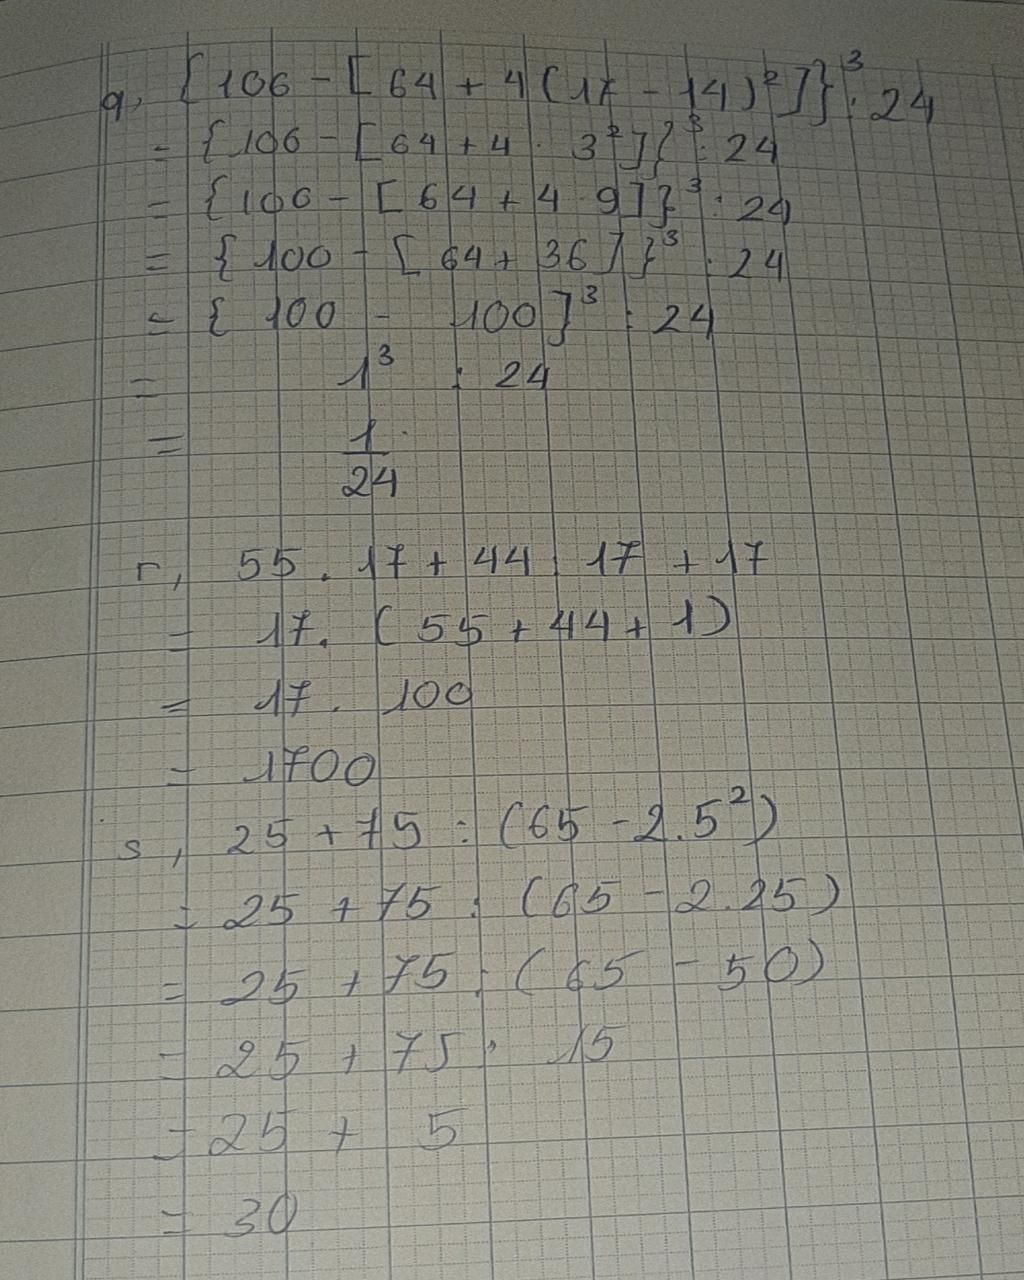 q, {106 - [64 + 4(17 - 14)²]}³ : 24
= {106 - [64 + 4 . 3²]}³ : 24
= {106 - [64 + 4 . 9]}³ : 24
= {100 - [64 + 36]}³ : 24
= {100 - 100]³ : 24
= 1³ : 24
= 1/24
r, 55 . 17 + 44 . 17 + 17
= 17. (55 + 44 + 1)
= 17 . 100
= 1700
s, 25 + 75 : (65 - 2.5²)
= 25 + 75 : (65 - 2.25)
= 25 + 75 : (65 - 50)
= 25 + 75 : 15
= 25 + 5
= 30